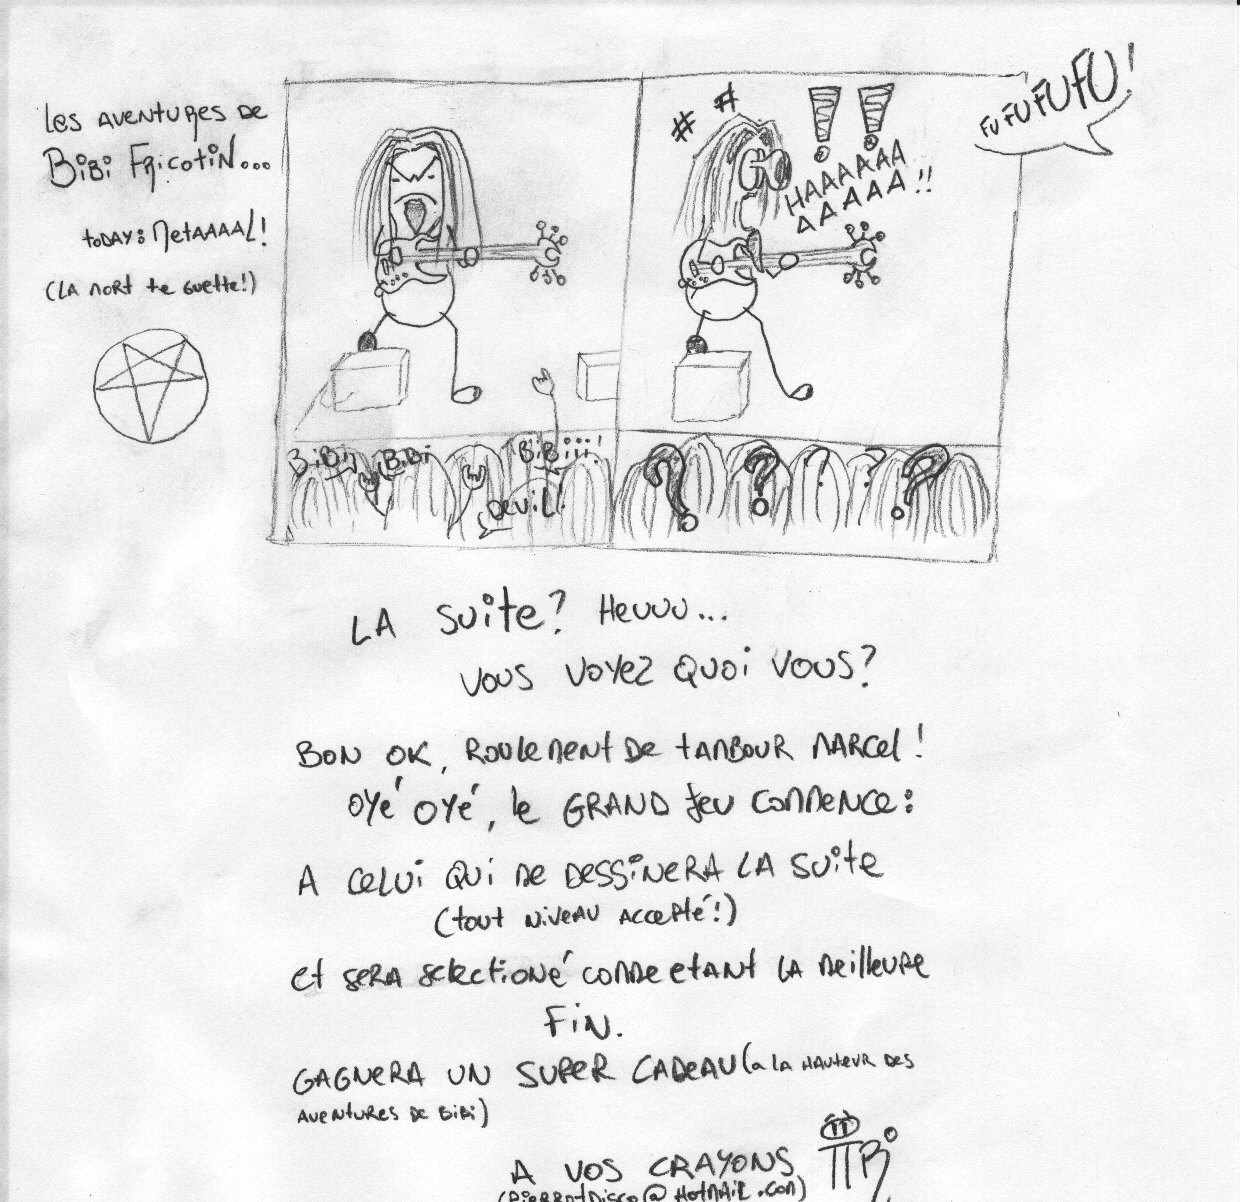 Les AVENTURES DE
BiBi FRicotiN...
toDAY: MetAAAAL!
(LA MORT te GUette!)
# #
!!
HAAAAAA
AAAAA!!
FU FU FU FU FU!
BiBi
BiBi
BiBiiii!
DEViL!
? ? ? ? ?
LA SUitE? HEUUU...
VOUS VOYEZ QUOi VOUS?
BON OK, ROULEMENT DE TAMBOUR MARCEL!
OYÉ OYÉ, LE GRAND JEU COMMENCE:
A CELUi QUi ME DESSiNERA LA SUitE
(tout NiVEAU ACCEPTÉ!)
Et SERA SELECTiONÉ COMME ETANT LA MEiLLEURE
FiN.
GAGNERA UN SUPER CADEAU (A LA HAUTEUR DES
AVENTURES DE BiBi)
A VOS CRAYONS
(PiERROtDiSCO@HOTMAiL.COM)